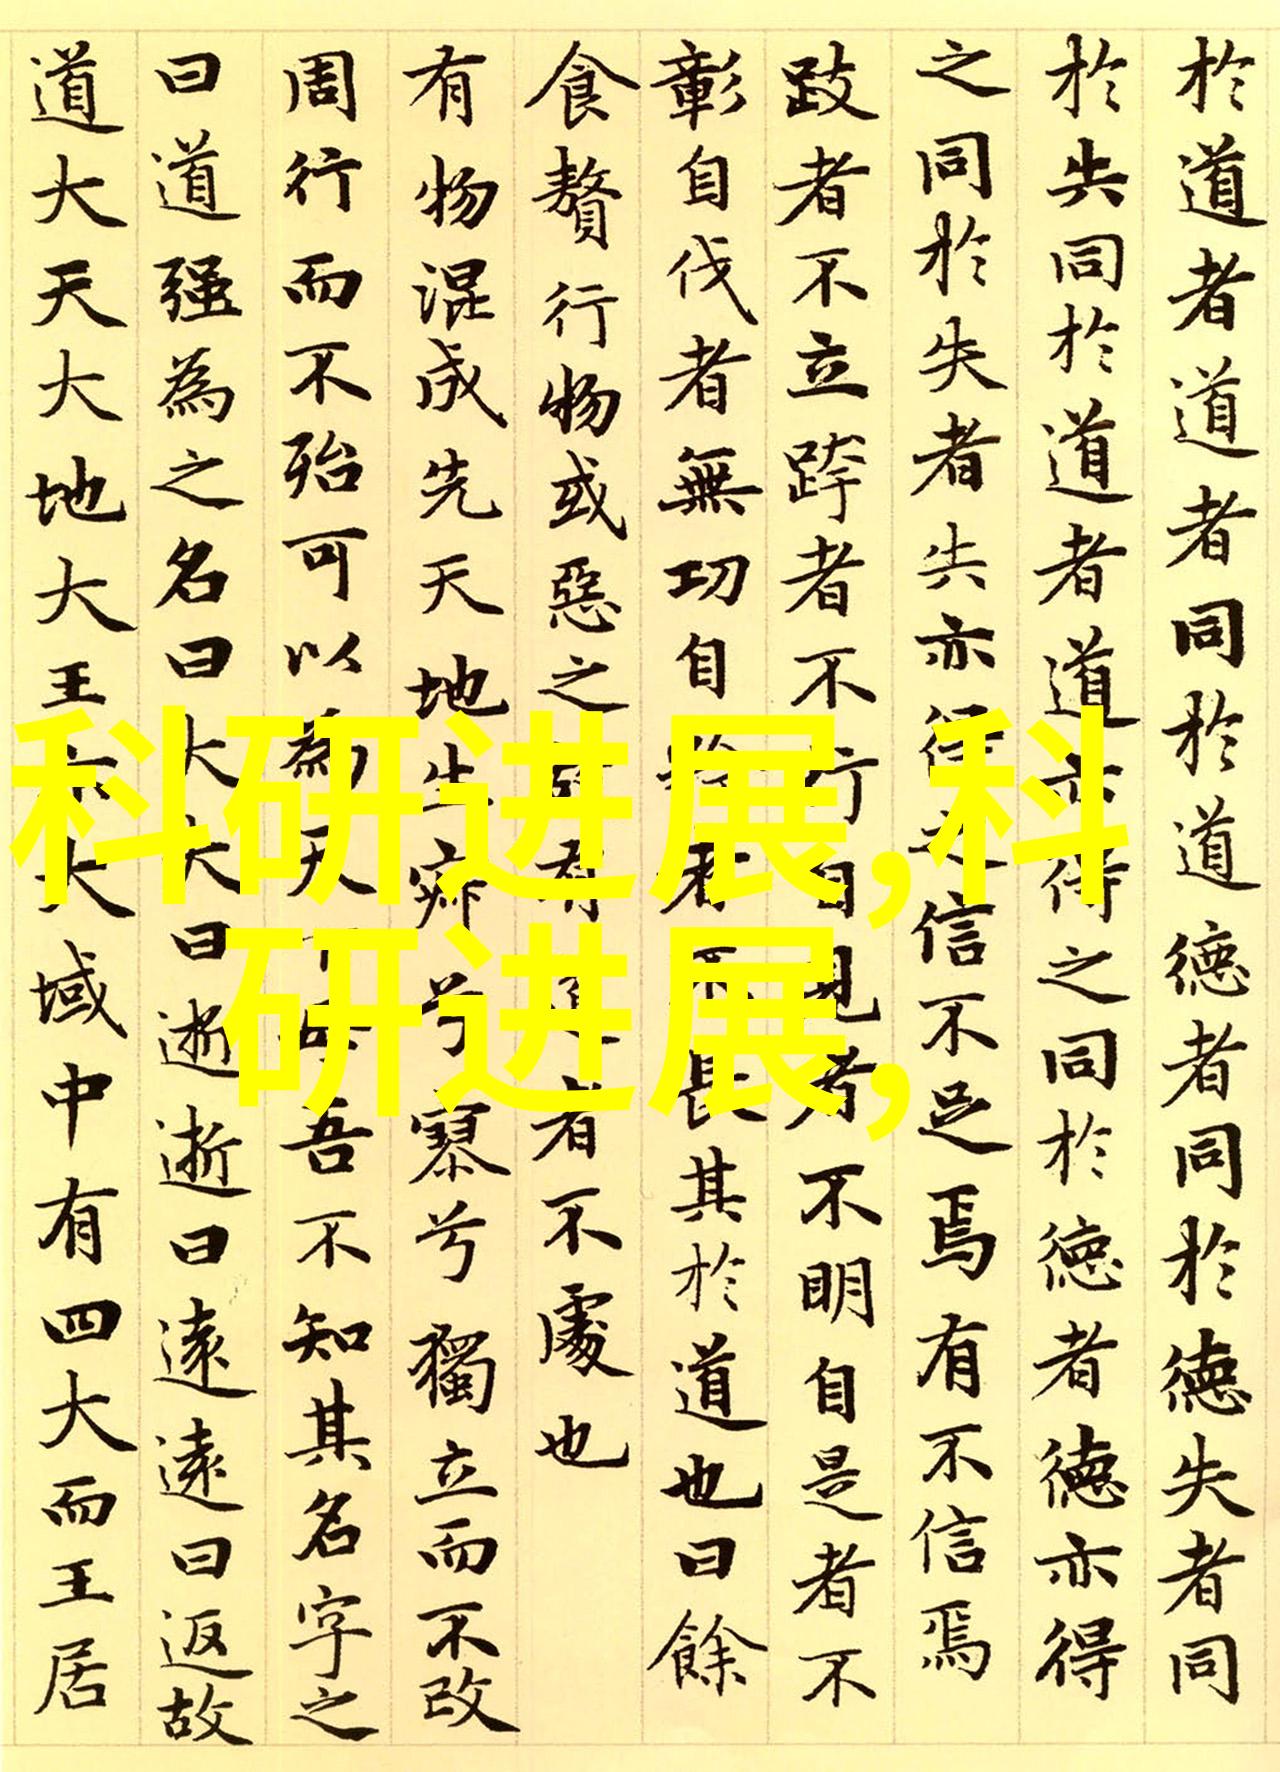 於道者道者同於道德者同於德失者同
於失同於道者道亦得之同於德者德亦得
之同於失者失亦得之信不足焉有不信焉
跂者不立跨者不行自見者不明自是者不
彰自伐者無功自矜者不長其於道也曰餘
食贅行物或惡之有道者不處也
有物混成先天地生寂兮寥兮獨立而不改
周行而不殆可以為天下母吾不知其名字之
曰道强為之名曰大大曰逝逝曰遠遠曰返故
道大天大地大王亦大域中有四大而王居
科研进展,科
研进展,